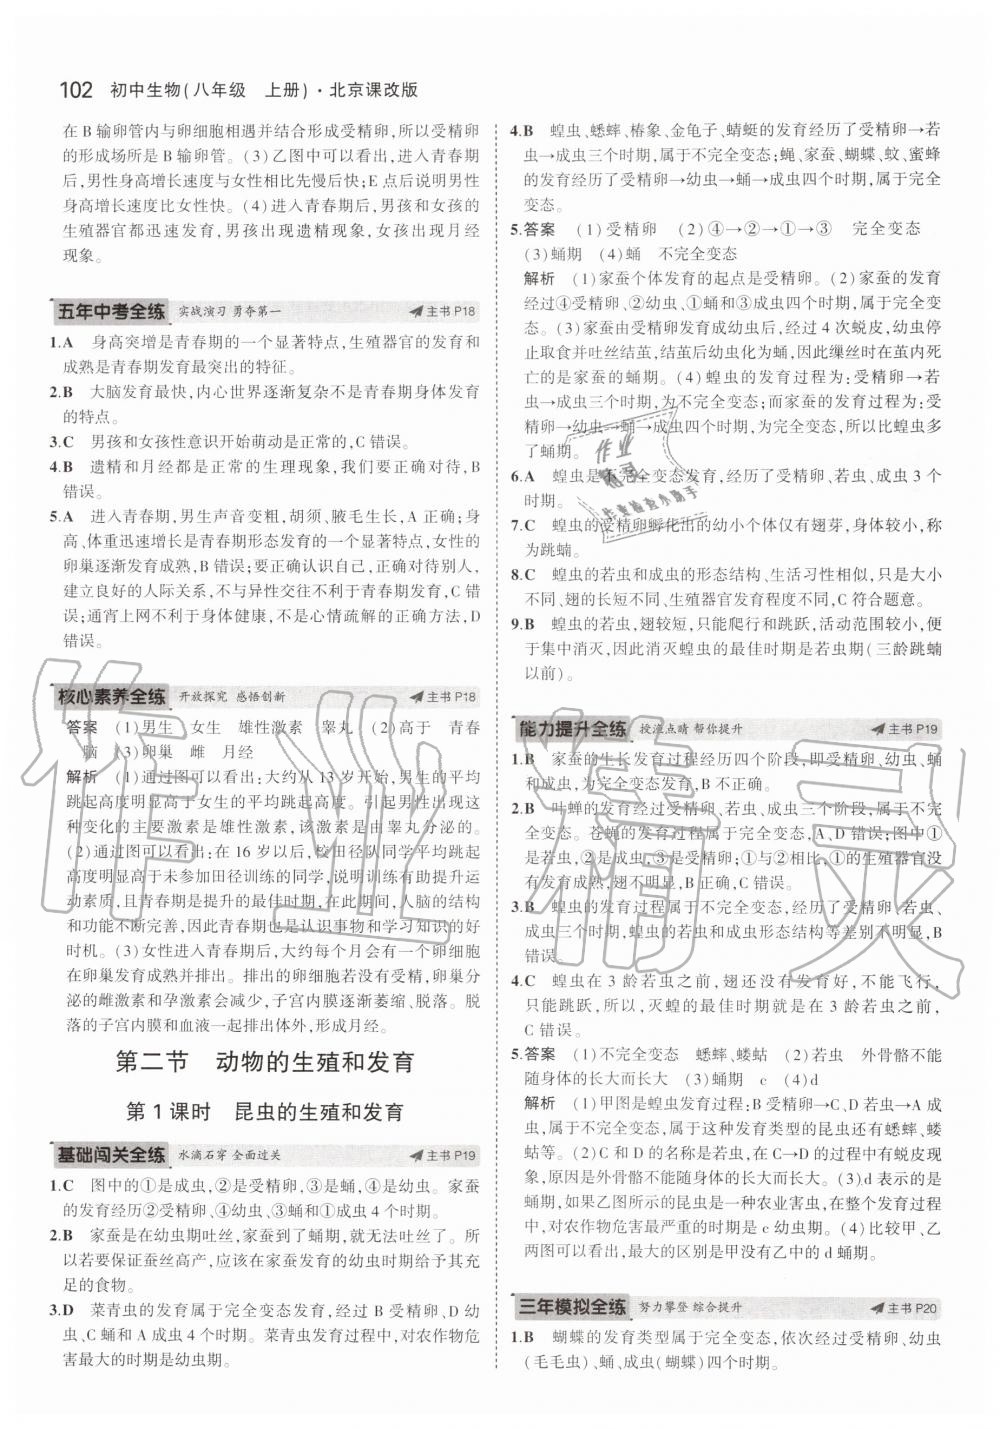 102 初中生物(八年级 上册)·北京课改版
在 B 输卵管内与卵细胞相遇并结合形成受精卵,所以受精卵
的形成场所是 B 输卵管。(3)乙图中可以看出,进入青春期
后,男性身高增长速度与女性相比先慢后快;E 点后说明男性
身高增长速度比女性快。(4)进入青春期后,男孩和女孩的
生殖器官都迅速发育,男孩出现遗精现象,女孩出现月经
现象。
五年中考全练 实战演习 勇夺第一 主书 P18
1.A 身高突增是青春期的一个显著特点,生殖器官的发育和
成熟是青春期发育最突出的特征。
2.B 大脑发育最快,内心世界逐渐复杂不是青春期身体发育
的特点。
3.C 男孩和女孩性意识开始萌动是正常的,C 错误。
4.B 遗精和月经都是正常的生理现象,我们要正确对待,B
错误。
5.A 进入青春期,男生声音变粗,胡须、腋毛生长,A 正确;身
高、体重迅速增长是青春期形态发育的一个显著特点,女性的
卵巢逐渐发育成熟,B 错误;要正确认识自己,正确对待别人,
建立良好的人际关系,不与异性交往不利于青春期发育,C 错
误;通宵上网不利于身体健康,不是心情疏解的正确方法,D
错误。
核心素养全练 开放探究 感悟创新 主书 P18
答案 (1)男生 女生 雄性激素 睾丸 (2)高于 青春
脑 (3)卵巢 雌 月经
解析 (1)通过图可以看出:大约从 13 岁开始,男生的平均
跳起高度明显高于女生的平均跳起高度。引起男性出现这
种变化的主要激素是雄性激素,该激素是由睾丸分泌的。
(2)通过图可以看出:在 16 岁以后,校田径队同学平均跳起
高度明显高于未参加田径训练的同学,说明训练有助提升运
动素质,且青春期是提升的最佳时期,在此期间,人脑的结构
和功能不断完善,因此青春期也是认识事物和学习知识的好
时机。(3)女性进入青春期后,大约每个月会有一个卵细胞
在卵巢发育成熟并排出。排出的卵细胞若没有受精,卵巢分
泌的雌激素和孕激素会减少,子宫内膜逐渐萎缩、脱落。脱
落的子宫内膜和血液一起排出体外,形成月经。
第二节 动物的生殖和发育
第 1 课时 昆虫的生殖和发育
基础闯关全练 水滴石穿 全面过关 主书 P19
1.C 图中的①是成虫,②是受精卵,③是蛹,④是幼虫。家蚕
的发育经历②受精卵、④幼虫、③蛹和①成虫 4 个时期。
2.B 家蚕是在幼虫期吐丝,家蚕到了蛹期,就无法吐丝了。所
以若要保证蚕丝高产,应该在家蚕发育的幼虫时期给予其充
足的食物。
3.D 菜青虫的发育属于完全变态发育,经过 B 受精卵、D 幼
虫、C 蛹和 A 成虫四个时期。菜青虫发育过程中,对农作物危
害最大的时期是幼虫期。
4.B 蝗虫、蟋蟀、椿象、金龟子、蜻蜓的发育经历了受精卵→若
虫→成虫三个时期,属于不完全变态;蝇、家蚕、蝴蝶、蚊、蜜蜂
的发育经历了受精卵→幼虫→蛹→成虫四个时期,属于完全
变态。
5.答案 (1)受精卵 (2)④→②→①→③ 完全变态
(3)蛹期 (4)蛹 不完全变态
解析 (1)家蚕个体发育的起点是受精卵。(2)家蚕的发育
经过④受精卵、②幼虫、①蛹和③成虫四个时期,属于完全变
态。(3)家蚕由受精卵发育成幼虫后,经过 4 次蜕皮,幼虫停
止取食并吐丝结茧,结茧后幼虫化为蛹,因此缫丝时在茧内死
亡的是家蚕的蛹期。(4)蝗虫的发育过程为:受精卵→若
虫→成虫三个时期,为不完全变态;而家蚕的发育过程为:受
精卵→幼虫→蛹→成虫四个时期,为完全变态,所以比蝗虫多
了蛹期。
6.A 蝗虫是不完全变态发育,经历了受精卵、若虫、成虫 3 个
时期。
7.C 蝗虫的受精卵孵化出的幼小个体仅有翅芽,身体较小,称
为跳蝻。
8.C 蝗虫的若虫和成虫的形态结构、生活习性相似,只是大小
不同、翅的长短不同、生殖器官发育程度不同,C 符合题意。
9.B 蝗虫的若虫,翅较短,只能爬行和跳跃,活动范围较小,便
于集中消灭,因此消灭蝗虫的最佳时期是若虫期(三龄跳蝻
以前)。
能力提升全练 拨滚点睛 帮你提升 主书 P19
1.B 家蚕的生长发育过程经历四个阶段,即受精卵、幼虫、蛹
和成虫,为完全变态发育,B 不正确。
2.B 叶蝉的发育经过受精卵、若虫、成虫三个阶段,属于不完
全变态。苍蝇的发育过程属于完全变态,A、D 错误;图中①
是若虫,②是成虫,③是受精卵;①与②相比,①的生殖器官没
有发育成熟,翅不明显,B 正确,C 错误。
3.B 蝗虫的发育过程属于不完全变态,经历了受精卵、若虫、
成虫三个时期,蝗虫的若虫和成虫形态结构等差别不明显,B
错误。
4.C 蝗虫在 3 龄若虫之前,翅还没有发育好,不能飞行,
只能跳跃,所以,灭蝗的最佳时期就是在 3 龄若虫之前,
C 错误。
5.答案 (1)不完全变态 蟋蟀、蝼蛄 (2)若虫 外骨骼不能
随身体的长大而长大 (3)蛹期 c (4)d
解析 (1)甲图是蝗虫发育过程;B 受精卵→C、D 若虫→A 成
虫,属于不完全变态,与这种发育类型的昆虫还有蟋蟀、蝼
蛄等。(2)C 和 D 的名称是若虫,在 C→D 的过程中有蜕皮现
象,原因是外骨骼不能随身体的长大而长大。(3)d 表示的是
蛹期,如果乙图所示的昆虫是一种农业害虫,在整个发育过程
中,对农作物危害最严重的时期是 c 幼虫期。(4)比较甲、乙
两图可以看出,最大的区别是甲没有乙中的 d 蛹期。
三年模拟全练 努力攀登 综合提升 主书 P20
1.B 蝴蝶的发育类型属于完全变态,依次经过受精卵、幼虫
(毛毛虫)、蛹、成虫(蝴蝶)四个时期。
作业精灵